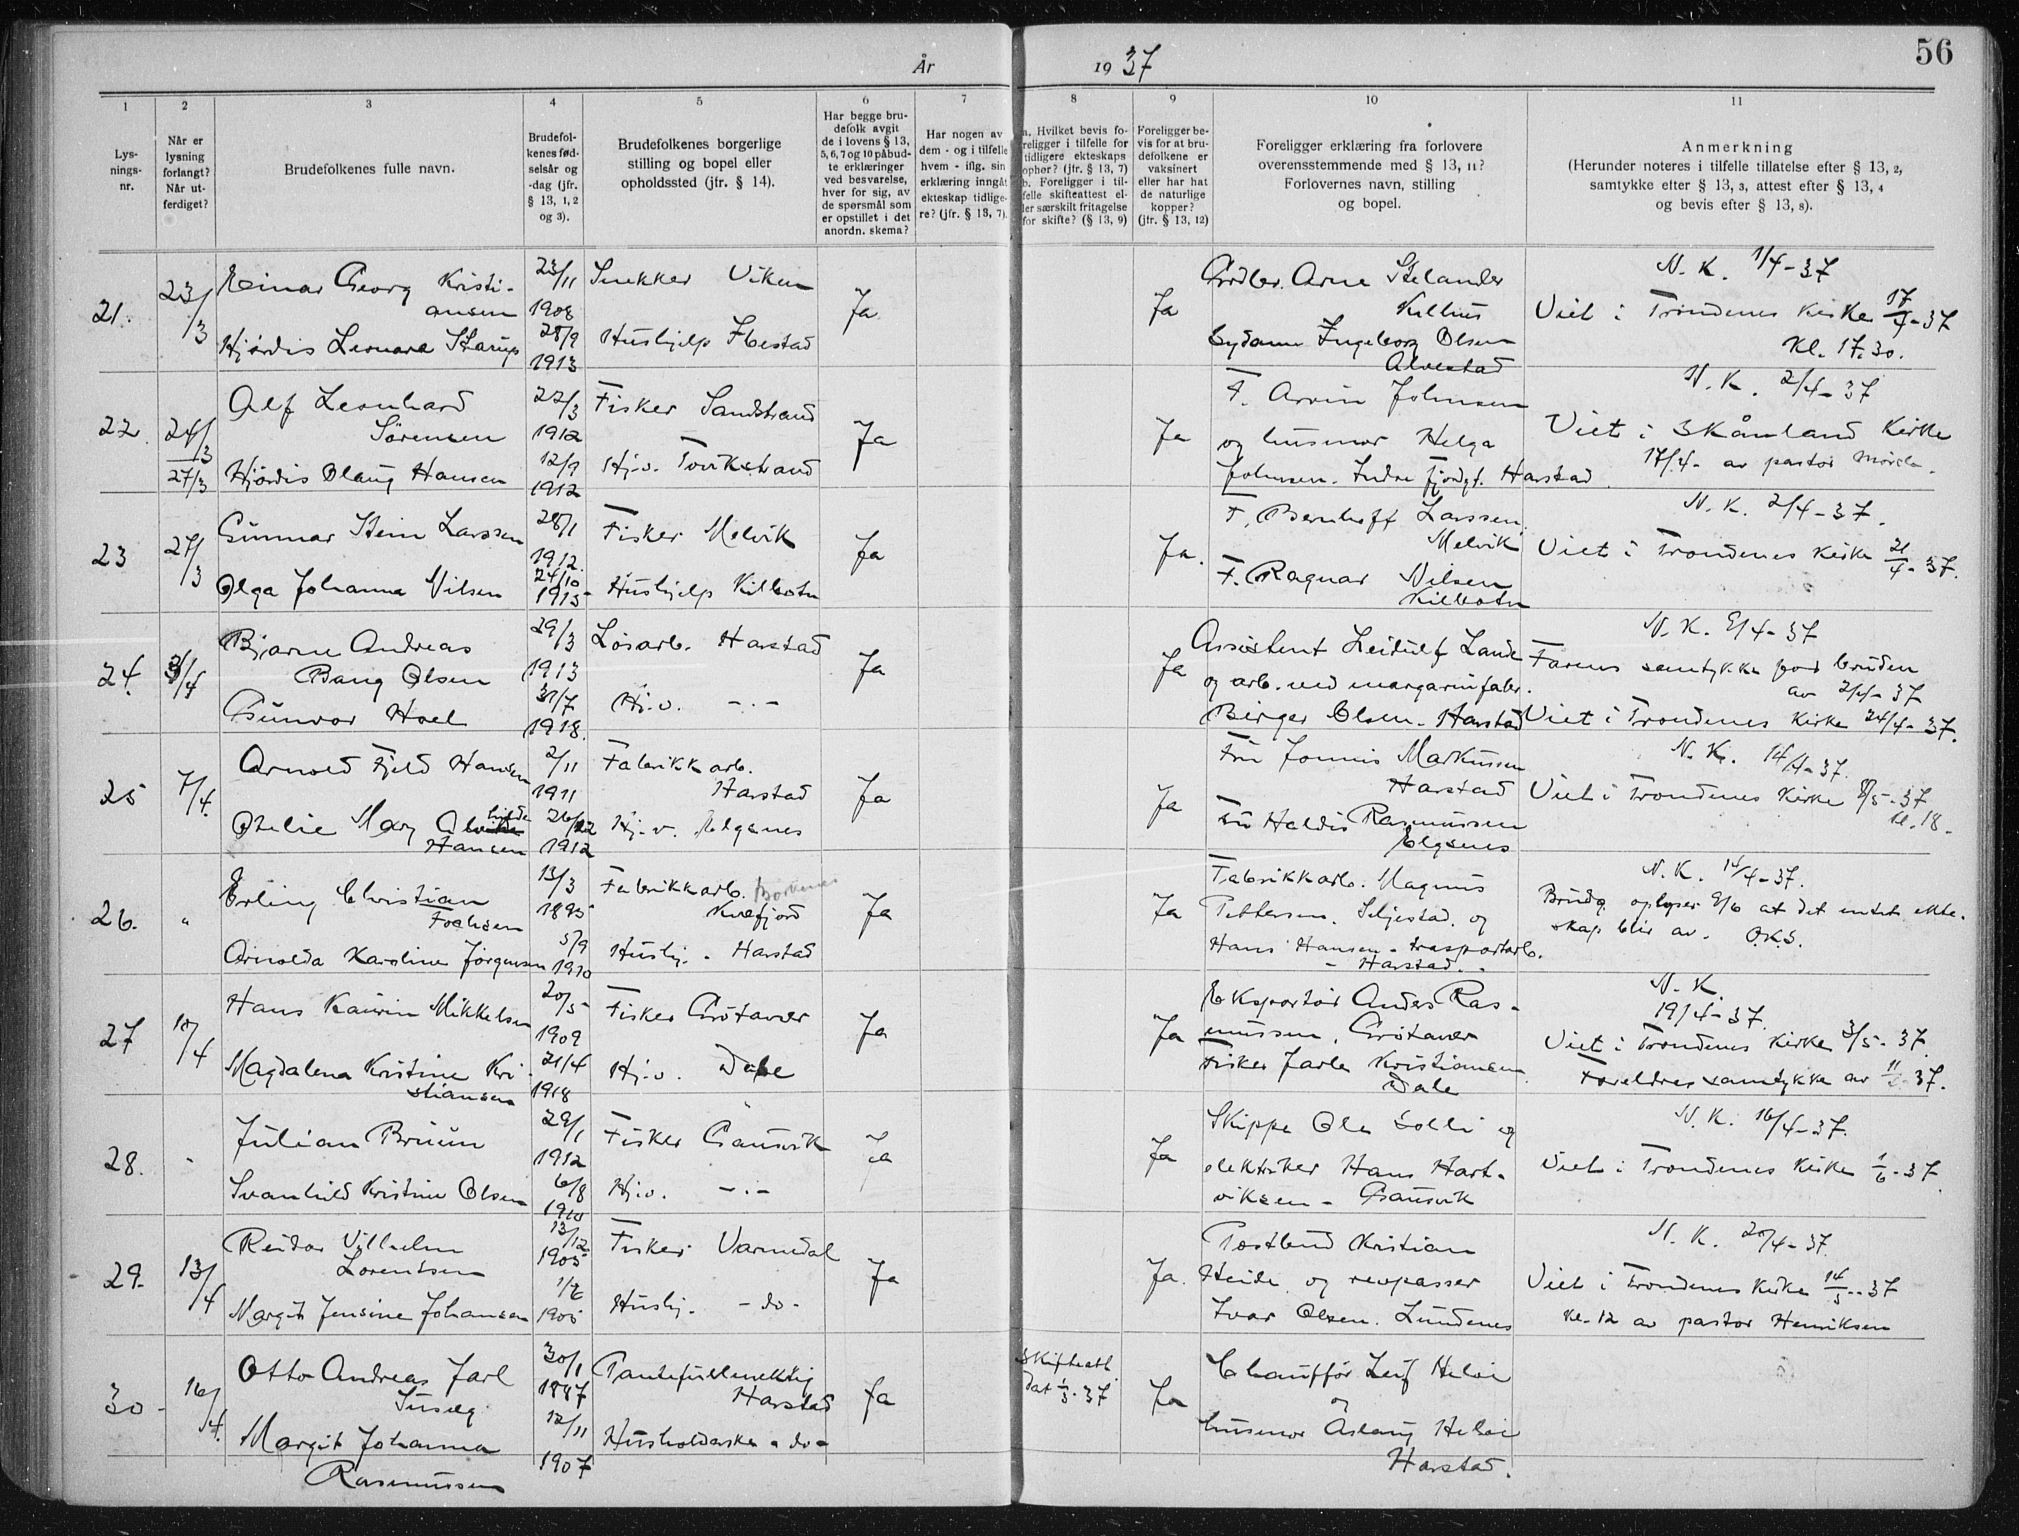 År 19 37
56
1 2 3 4 5 6 7 8 9 10 11
Lys-
nings-
nr.
Når er
lysning
forlangt?
Når ut-
ferdiget?
Brudefolkenes fulle navn.
Brudefol-
kenes fød-
selsår og
-dag (jfr.
§ 13, 1, 2
og 3).
Brudefolkenes borgerlige
stilling og bopel eller
opholdssted (jfr. § 14).
Har begge bru-
defolk avgit
de i lovens § 13,
5, 6, 7 og 10 påbud-
te erklæringer
ved besvarelse,
hver for sig, av
de spørsmål som
er opstillet i det
anordn. skema?
Har nogen av
dem - og i tilfelle
hvem - iflg. sin
erklæring inngåt
ekteskap tidlige-
re? (jfr. § 13, 7).
a. Hvilket bevis fo-
religger i tilfelle for
tidligere ekteskaps
ophør? (jfr. § 13, 7)
b. Foreligger i til-
felle skifteattest el-
ler særskilt fritagelse
for skifte? (§ 13, 9)
Foreligger be-
vis for at bru-
defolkene er
vaksinert
eller har hat
de naturlige
kopper?
(jfr. § 13, 12)
Foreligger erklæring fra forlovere
overensstemmende med § 13, 11?
Forlovernes navn, stilling
og bopel.
Anmerkning
(Herunder noteres i tilfelle tillatelse efter § 13, 2,
samtykke efter § 13, 3, attest efter § 13, 4
og bevis efter § 13, 8).
21. 23/3 Einar Georg Kristi-
ansen 23/11 1908 Snekker Viken Ja
Hjørdis Leonore Skarup 28/9 1913 Hushjelp Ibestad
Ja Arne Stelander
Kilhus
Ingeborg Olsen
Alvestad
N. K. 1/4-37
Viet i Trondenes Kirke 17/4-37
Kl. 17.30.
22. 24/3 27/3 Alf Leonhard
Sørensen 22/3 1912 Fisker Sandstrand Ja
Hjørdis Olaug Hansen 12/9 1912 Hj.v. Tovikstrand
Ja F. Arvin Johnsen
og husmor Helga
Johnsen. Indre Fjordgt. Harstad
N. K. 2/4-37
Viet i Skånland Kirke
17/4- av pastor
23 27/3 Gunnar Stein Larssen 28/1 1912. Fisker Melvik Ja
Olga Johanna Nilsen 24/10 1915 Hushjelp Kilbotn
Ja. F. Bernhoff Larssen
Melvik
F. Ragnar Nilsen
Kilbotn
N. K. 2/4-37.
Viet i Trondenes Kirke 21/4-37.
24. 3/4 Bjarne Andreas
Bang Olsen 29/3 1913 Løsarb. Harstad Ja
Gunvor Hoel 31/7 1918. Hj.v. -.-
Ja Assistent Leidulf Lande
og arb. ved margarinfabr.
Birger Olsen. Harstad
N. K. 9/4-37
Farens samtykke for bruden
av 2/4-37
Viet i Trondenes Kirke 24/4-37.
25 7/4. Arnold Fjeld Hansen 2/11 1911 Fabrikkarb.
Harstad Ja
Otelie Mary Alvhilde
Hansen 26/12 1912 Hj.v. Elgsnes
Ja Fru Jonnis Markussen
Harstad
Fru Haldis Rasmussen
Elgsnes
N. K. 14/4-37.
Viet i Trondenes Kirke 8/5-37
kl. 18.
26. " Erling Christian
Fochsen 13/3 1895 Fabrikkarb. Borkenes
Kvæfjord Ja
Arnolda Karoline Jørgensen 5/9 1910 Hushj. - Harstad
Ja Fabrikkarb. Magnus
Pettersen. Seljestad. og
Hans Hansen - trasportarb.
- Harstad. -
N. K. 14/4-37.
Brudg. oplyser 9/6 at det intet ekte-
skap blir av. O.K.S.
27 10/4 Hans Kaurin Mikkelsen 20/5 1909 Fisker Grøtavær Ja
Magdalena Kristine Kri-
stiansen 21/4 1918 Hj.v. Dale
Ja Eksportør Anders Ras-
mussen, Grøtavær
Fisker Jarle Kristiansen
Dale
N. K.
19/4-37.
Viet i Trondenes Kirke 3/5-37.
Foreldres samtykke av 11/4-37.
28. - Julian Bruun 29/1 1912 Fisker Gausvik Ja
Svanhild Kristine Olsen 6/8 1910 Hj.v. -.-
Ja Skipper Ole Solli og
elektriker Hans Hart-
viksen - Gausvik
N. K. 16/4-37.
Viet i Trondenes Kirke 1/6-37
29. 13/4 Reidar Vilhelm
Lorentsen 13/12 1905 Fisker Varmedal Ja
Margit Jensine Johansen 1905 Hushj. - do -
Ja. Postbud Kristian
Heide og revpasser
Ivar Olsen. Lundenes
N. K. 20/4-37.
Viet i Trondenes Kirke 14/5-37
kl. 12 av pastor Henriksen
30 - 16/4. Otto Andreas Jarl
30/1 1887 Pantefullmektig
Harstad Ja
Margit Johanna
Rasmussen 12/11 1907 Husholderske - do -
Skifteatt.
dat 1/3-37 Ja Chauffør Leif Heløe
og
husmor Aslaug Heløe
Harstad.